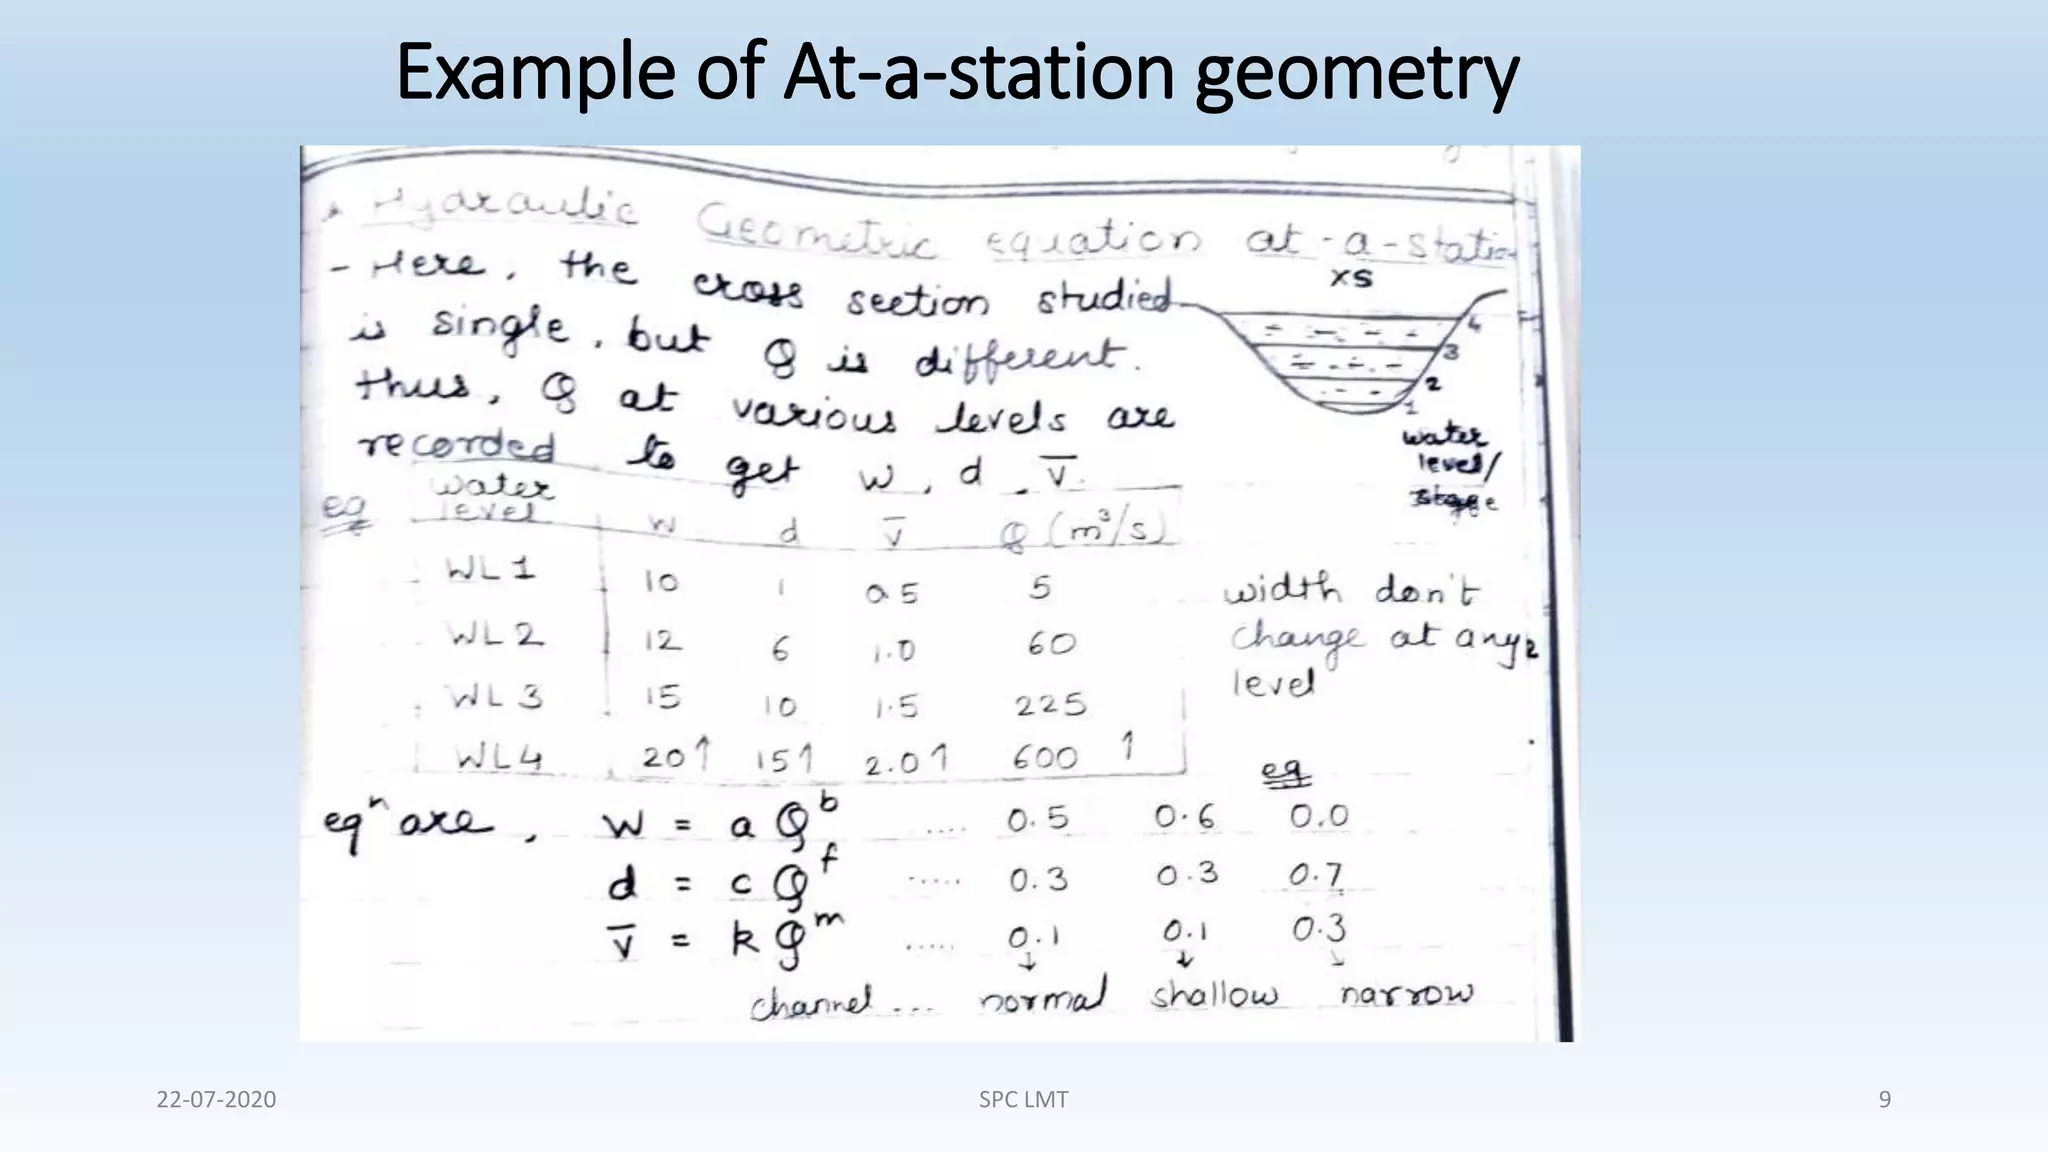 Example of At-a-station geometry
* Hydraulic Geometric equation at-a-station
- Here, the cross section studied
is single, but Q is different.
thus, Q at various levels are
recorded to get w, d, v̅.
XS
4
3
2
1
water
level/
stage
eg
water level w d v̅ Q (m³/s)
WL1 10 1 0.5 5
WL2 12 6 1.0 60
WL3 15 10 1.5 225
WL4 20↑ 15↑ 2.0↑ 600 ↑
width don't
change at any
level
eg
eqⁿ are, w = a Q^b .... 0.5 0.6 0.0
d = c Q^f ..... 0.3 0.3 0.7
v̅ = k Q^m ..... 0.1 0.1 0.3
↓ ↓ ↘
channel ... normal shallow narrow
22-07-2020 SPC LMT 9